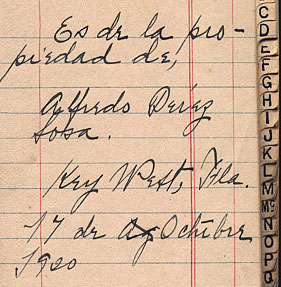 Es de la pro-
piedad de,
Alfredo Peréz
Sosa.
Key West, Fla.
17 de Ag Octubre
1920
C
D
E
F
G
H
I
J
K
L
M
Mc
N
O
P
Q